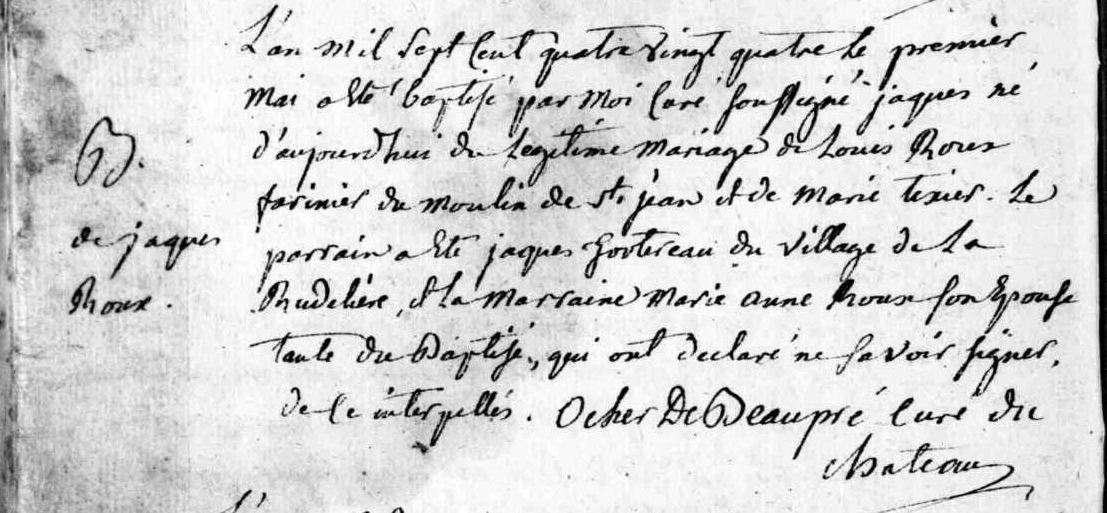 L'an mil sept cent quatre vingt quatre le premier
mai a été baptisé par moi curé soussigné jaques né
B.
d'aujourd'hui du legitime mariage de Louis Roux
farinier du moulin de st jean et de marie texier. Le
de jaques
parrain a été jaques du village de La
Roux.
Rudelière, et la marraine marie anne Roux son Epouse
tante du Baptisé, qui ont declaré ne savoir signer,
de ce interpellés. Ocher De Beaupré curé du
chateau